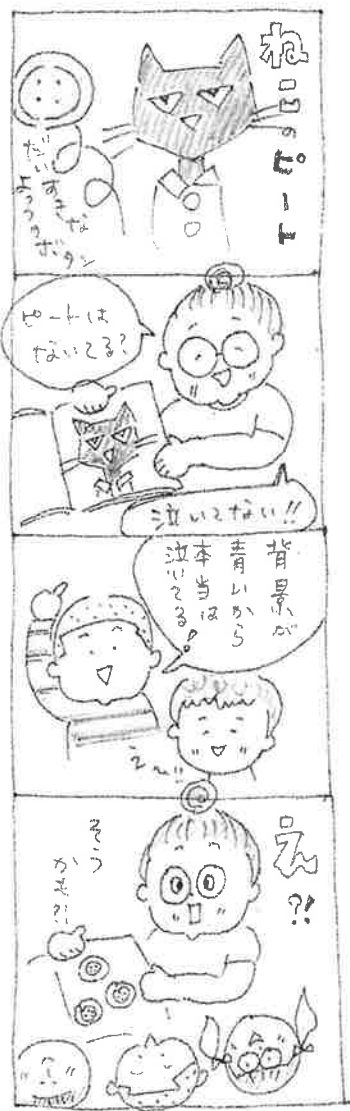 ねこのピート
だいすきな
よっつのボタン
ピートは
ないてる?
泣いてない!!
背景が
青いから
本当は
泣いてる!
え〜!!
え?!
そう
かも?!